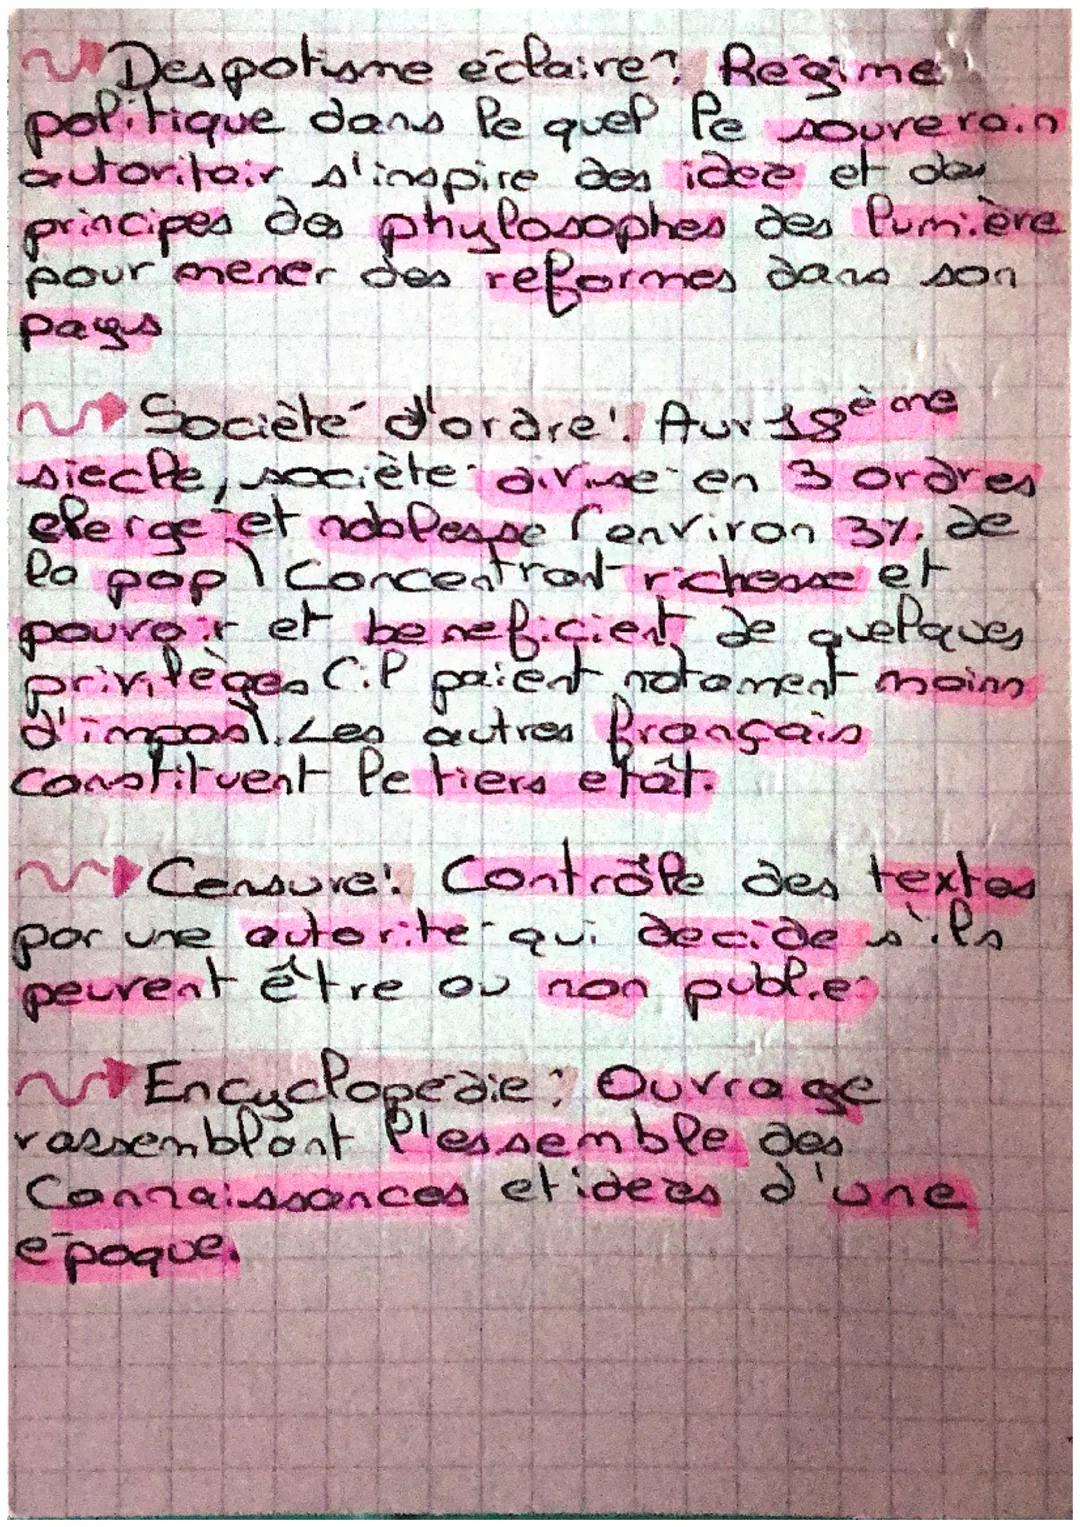 Despotisme éclairé: Régime
politique dans le quel le souverain
autoritair s'inspire des idée et des
principes des phylosophes des lumière
pour mener des reformes dans son
pays
Socièté d'ordre: Aux 18ème
siecle, socièté divisé en 3 ordres
clergé et noblesse (environ 3% de
la pop) Concentrant richesse et
pouvoir et beneficient de quelques
privilèges C.P paient notament moins
d'impos). Les autres français
constituent le tiers etât.
Censure: Contrôle des textes
par une autorité qui decide s'ils
peuvent être ou non publié
Encyclopédie: Ouvrage
rassemblant l'essemble des
Connaissances et idées d'une
époque.